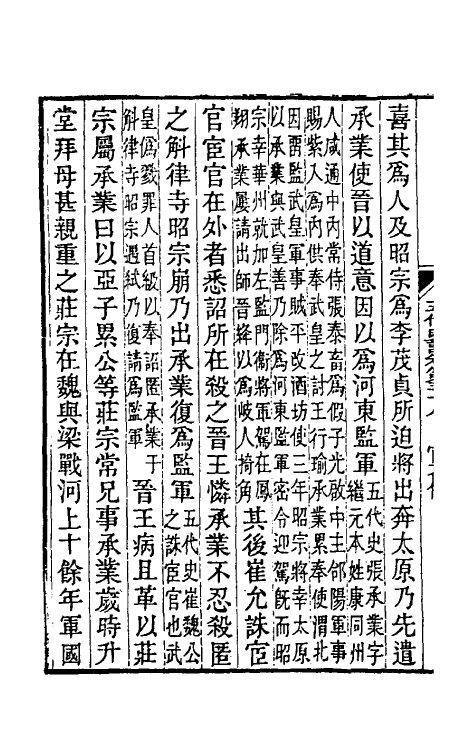 喜其爲人及昭宗爲李茂貞所迫將出奔太原乃先遣
承業使晉以道意因以爲河東監軍五代史張承業字
繼元本姓康同州
人咸通中內常侍張泰畜爲假子光啟中主郃陽軍事
賜紫入爲內供奉武皇之討王行瑜承業累奉使渭北
因畱監武皇軍事賊平改酒坊使三年昭宗將幸太原
以承業與武皇善乃除爲河東監軍密令迎駕旣而昭
宗幸華州就加左監門衞將軍駕在鳳
翔承業屢請出師晉絳以爲岐人掎角其後崔允誅宦
官宦官在外者悉詔所在殺之晉王憐承業不忍殺匿
之斛律寺昭宗崩乃出承業復爲監軍五代史崔魏公
之誅宦官也武
皇爲戮罪人首級以奉詔匿承業于
斛律寺昭宗遇弒乃復請爲監軍晉王病且革以莊
宗屬承業曰以亞子累公等莊宗常兄事承業歲時升
堂拜母甚親重之莊宗在魏與梁戰河上十餘年軍國